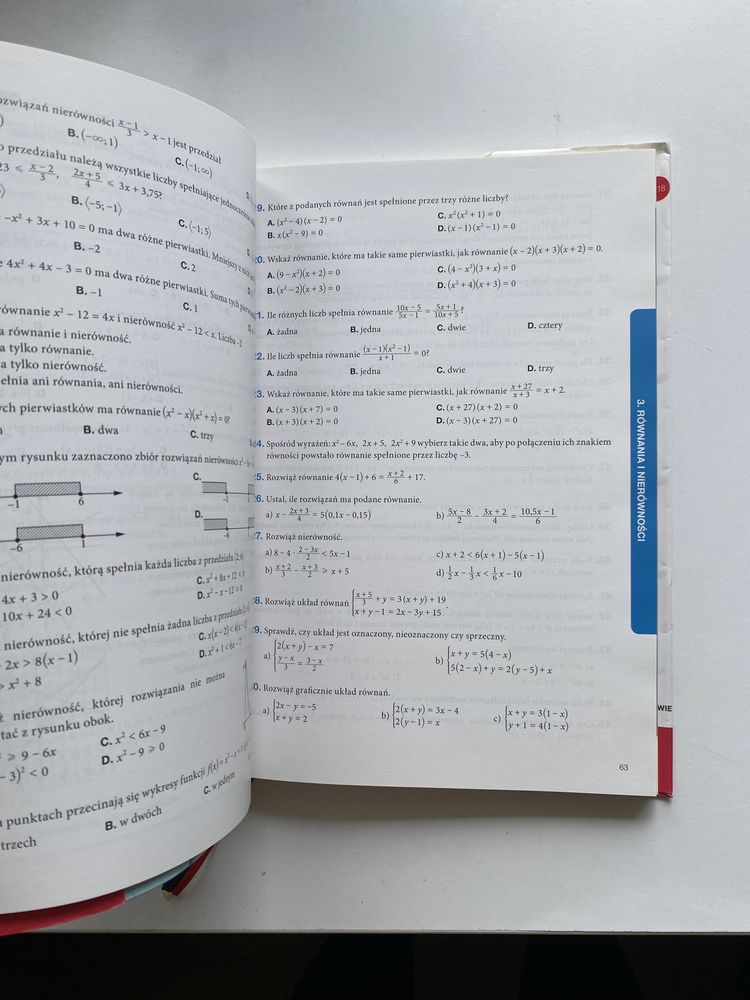 związań nierówności x – 1/3 > x – 1 jest przedział
B. (–∞; 1)
C. (–1; ∞)
przedziału należą wszystkie liczby spełniające jednocześnie
23 ⩽ x – 2/3, 2x + 5/4 ⩽ 3x + 3,75?
B. ⟨–5; –1⟩
C. ⟨–1; 5⟩
–x² + 3x + 10 = 0 ma dwa różne pierwiastki. Mniejszy z nich
B. –2
C. 2
4x² + 4x – 3 = 0 ma dwa różne pierwiastki. Suma tych
B. –1
C. 1
równanie x² – 12 = 4x i nierówność x² – 12 < x. Liczba –2
a równanie i nierówność.
a tylko równanie.
a tylko nierówność.
ełnia ani równania, ani nierówności.
ych pierwiastków ma równanie (x² – x)(x² + x) = 0?
B. dwa
C. trzy
ym rysunku zaznaczono zbiór rozwiązań nierówności
–1 6
C.
–1
–6 1
D.
–6
nierówność, którą spełnia każda liczba z przedziału
4x + 3 > 0
C. x² + 8x + 12 < 0
10x + 24 < 0
D. x² – x – 12 > 0
nierówność, której nie spełnia żadna liczba z przedziału
2x > 8(x – 1)
C. x(x – 2) <
> x² + 8
D. x² + 1 < 6x – 7
ż nierówność, której rozwiązania nie można
tać z rysunku obok.
⩾ 9 – 6x
C. x² < 6x – 9
– 3)² < 0
D. x² – 9 ⩾ 0
punktach przecinają się wykresy funkcji
trzech
B. w dwóch
C. w jednym
9. Które z podanych równań jest spełnione przez trzy różne liczby?
A. (x² – 4)(x – 2) = 0
C. x²(x² + 1) = 0
B. x(x² – 9) = 0
D. (x – 1)(x² – 1) = 0
0. Wskaż równanie, które ma takie same pierwiastki, jak równanie (x – 2)(x + 3)(x + 2) = 0.
A. (9 – x²)(x + 2) = 0
C. (4 – x²)(3 + x) = 0
B. (x² – 2)(x + 3) = 0
D. (x² + 4)(x + 3) = 0
1. Ile różnych liczb spełnia równanie 10x – 5/5x – 1 = 5x + 1/10x + 5?
A. żadna B. jedna C. dwie D. cztery
2. Ile liczb spełnia równanie (x – 1)(x² – 1)/x + 1 = 0?
A. żadna B. jedna C. dwie D. trzy
3. Wskaż równanie, które ma takie same pierwiastki, jak równanie x + 27/x + 3 = x + 2.
A. (x – 3)(x + 7) = 0
C. (x + 27)(x + 2) = 0
B. (x + 3)(x + 2) = 0
D. (x – 3)(x + 27) = 0
4. Spośród wyrażeń: x² – 6x, 2x + 5, 2x² + 9 wybierz takie dwa, aby po połączeniu ich znakiem
równości powstało równanie spełnione przez liczbę –3.
5. Rozwiąż równanie 4(x – 1) + 6 = x + 2/6 + 17.
6. Ustal, ile rozwiązań ma podane równanie.
a) x – 2x + 3/4 = 5(0,1x – 0,15)
b) 5x – 8/2 – 3x + 2/4 = 10,5x – 1/6
7. Rozwiąż nierówność.
a) 8 – 4 · 2 – 3x/2 < 5x – 1
c) x + 2 < 6(x + 1) – 5(x – 1)
b) x + 2/3 – x + 3/2 ⩾ x + 5
d) 1/2 x – 1/3 x < 1/6 x – 10
8. Rozwiąż układ równań { x + 5/3 + y = 3(x + y) + 19
x + y – 1 = 2x – 3y + 15.
9. Sprawdź, czy układ jest oznaczony, nieoznaczony czy sprzeczny.
a) { 2(x + y) – x = 7
y – x/3 = 3 – x/2
b) { x + y = 5(4 – x)
5(2 – x) + y = 2(y – 5) + x
0. Rozwiąż graficznie układ równań.
a) { 2x – y = –5
x + y = 2
b) { 2(x + y) = 3x – 4
2(y – 1) = x
c) { x + y = 3(1 – x)
y + 1 = 4(1 – x)
63
3. RÓWNANIA I NIERÓWNOŚCI
18
WIE